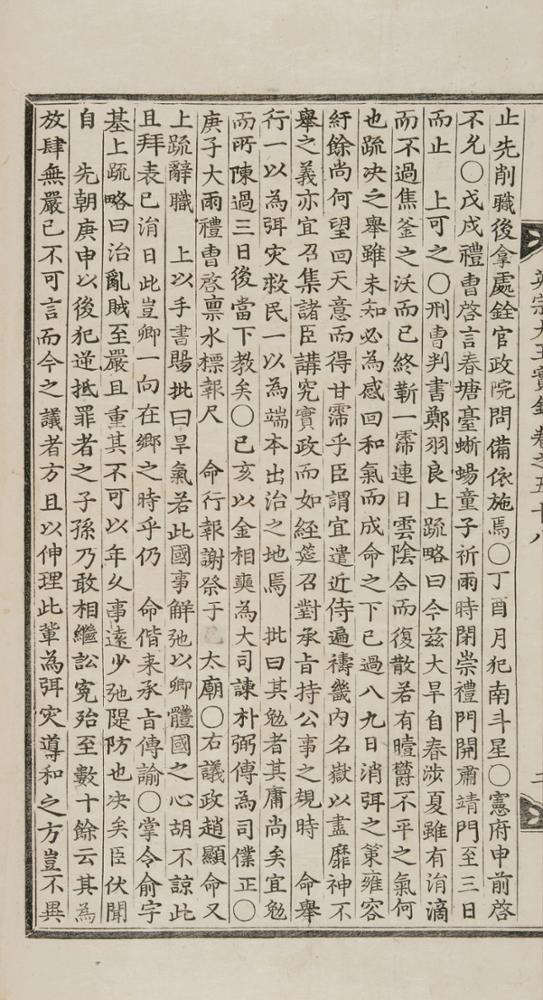 英宗大王實錄卷之五十八
二
止先削職後拿處銓官政院問備依施焉○丁酉月犯南斗星○憲府申前啓
不允○戊戌禮曹啓言春塘臺蜥蜴童子祈雨時閉崇禮門開肅靖門至三日
而止　上可之○刑曹判書鄭羽良上疏略曰今玆大旱自春涉夏雖有涓滴
而不過焦釜之沃而已終靳一霈連日雲陰合而復散若有曀欝不平之氣何
也疏决之擧雖未知必爲感回和氣而成命之下已過八九日消弭之策雍容
紆餘尙何望回天意而得甘霈乎臣謂宜遣近侍遍禱畿內名嶽以盡靡神不
擧之義亦宜召集諸臣講究實政而如經筵召對承旨持公事之規時　命擧
行一以爲弭灾救民一以爲端本出治之地焉　批曰其勉者其庸尙矣宜勉
而所陳過三日後當下敎矣○己亥以金相奭爲大司諫朴弼傳爲司僕正○
庚子大雨禮曹啓稟水標報尺　命行報謝祭于　太廟○右議政趙顯命又
上疏辭職　上以手書賜批曰旱氣若此國事解弛以卿體國之心胡不諒此
且拜表已涓日此豈卿一向在鄕之時乎仍　命偕来承旨傳諭○掌令俞宇
基上疏略曰治亂賊至嚴且重其不可以年久事遠少弛隄防也决矣臣伏聞
自　先朝庚申以後犯逆抵罪者之子孫乃敢相繼訟寃殆至數十餘云其爲
放肆無嚴已不可言而今之議者方且以伸理此輩爲弭灾導和之方豈不異